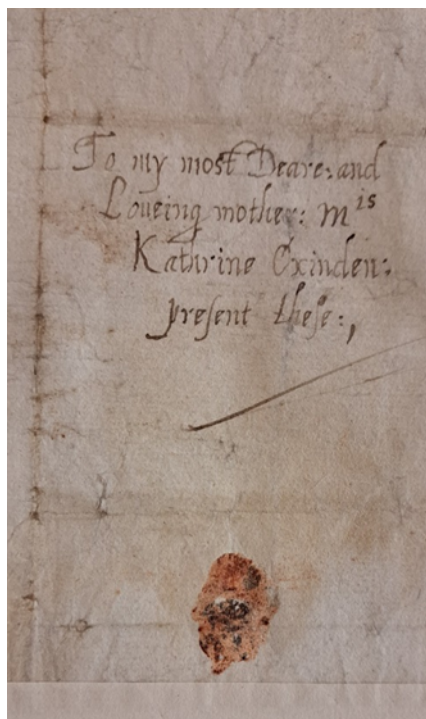 To my most Deare: and
Loueing mother: Mis
Kathrine Oxinden:
present these:,